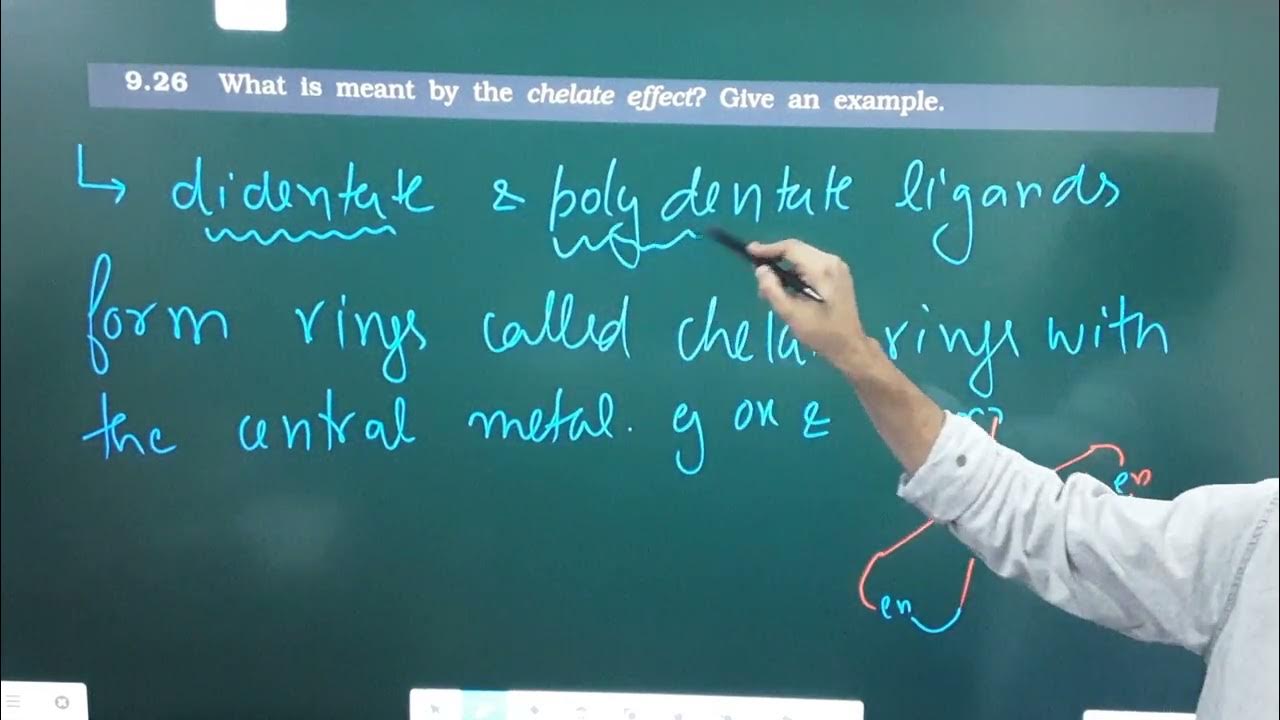 9.26 What is meant by the chelate effect? Give an example.
↳ didentate & polydentate ligands
form rings called rings with
the central metal. eg ox &
en
en